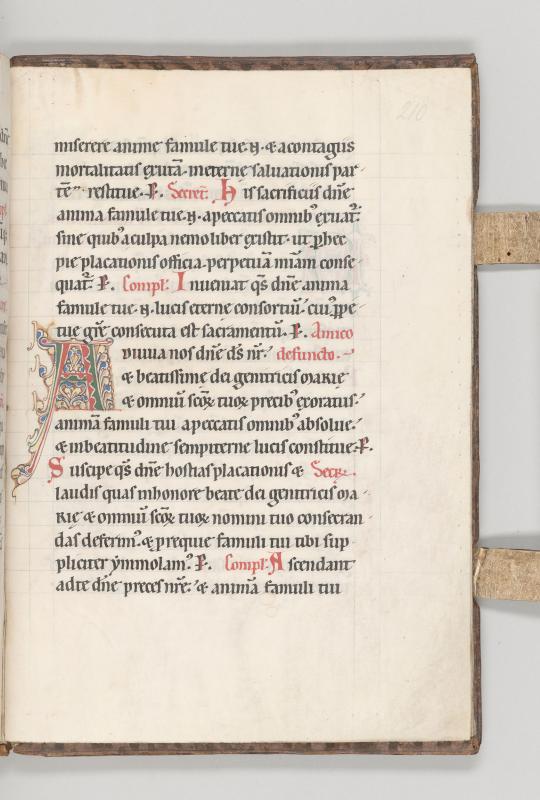 210
miserere anime famule tue .N. & a contagiis
mortalitatis exutā. in eterne saluationis par
tē restitue. P. Secret. His sacrificiis dn̄e
anima famule tue .N. a peccatis omnib' exuat.
sine quib' a culpa nemo liber existit. ut p̄ hec
pie placationis officia. perpetuā miam conse
quat. P. Compl. Inueniat qs dn̄e anima
famule tue .N. lucis eterne consortiū. cui' ppe
tue gre consecuta est sacramentū. P. Amico
Annua nos dn̄e ds nr̄. defuncto.
& beatissime dei genitricis MARIE
& omniū scōꝝ tuoꝝ precib' exoratus.
animā famuli tui a peccatis omnib' absolue.
& in beatitudine sempiterne lucis constitue. P.
Suscipe qs dn̄e hostias placationis & Secr.
laudis quas in honore beate dei genitricis MA
RIE & omniū scōꝝ tuoꝝ nomini tuo consecran
das deferim'. & pro requie famuli tui tibi sup
pliciter ymmolam'. P. Compl. Ascendant
ad te dn̄e preces nr̄e. & animā famuli tui